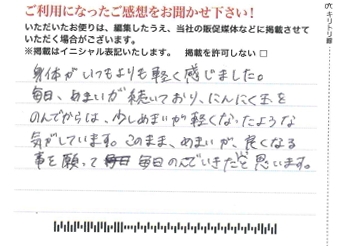 ご利用になったご感想をお聞かせ下さい!
いただいたお便りは、編集したうえ、当社の販促媒体などに掲載させて
いただく場合がございます。
※掲載はイニシャル表記いたします。 掲載を許可しない □
キリトリ線
身体がいつもよりも軽く感じました。
毎日、めまいが続いており、にんにく玉を
のんでからは、少しめまいが軽くなったような
気がしています。このまま、めまいが、良くなる
事を願って 毎日のんでいきたいと思います。